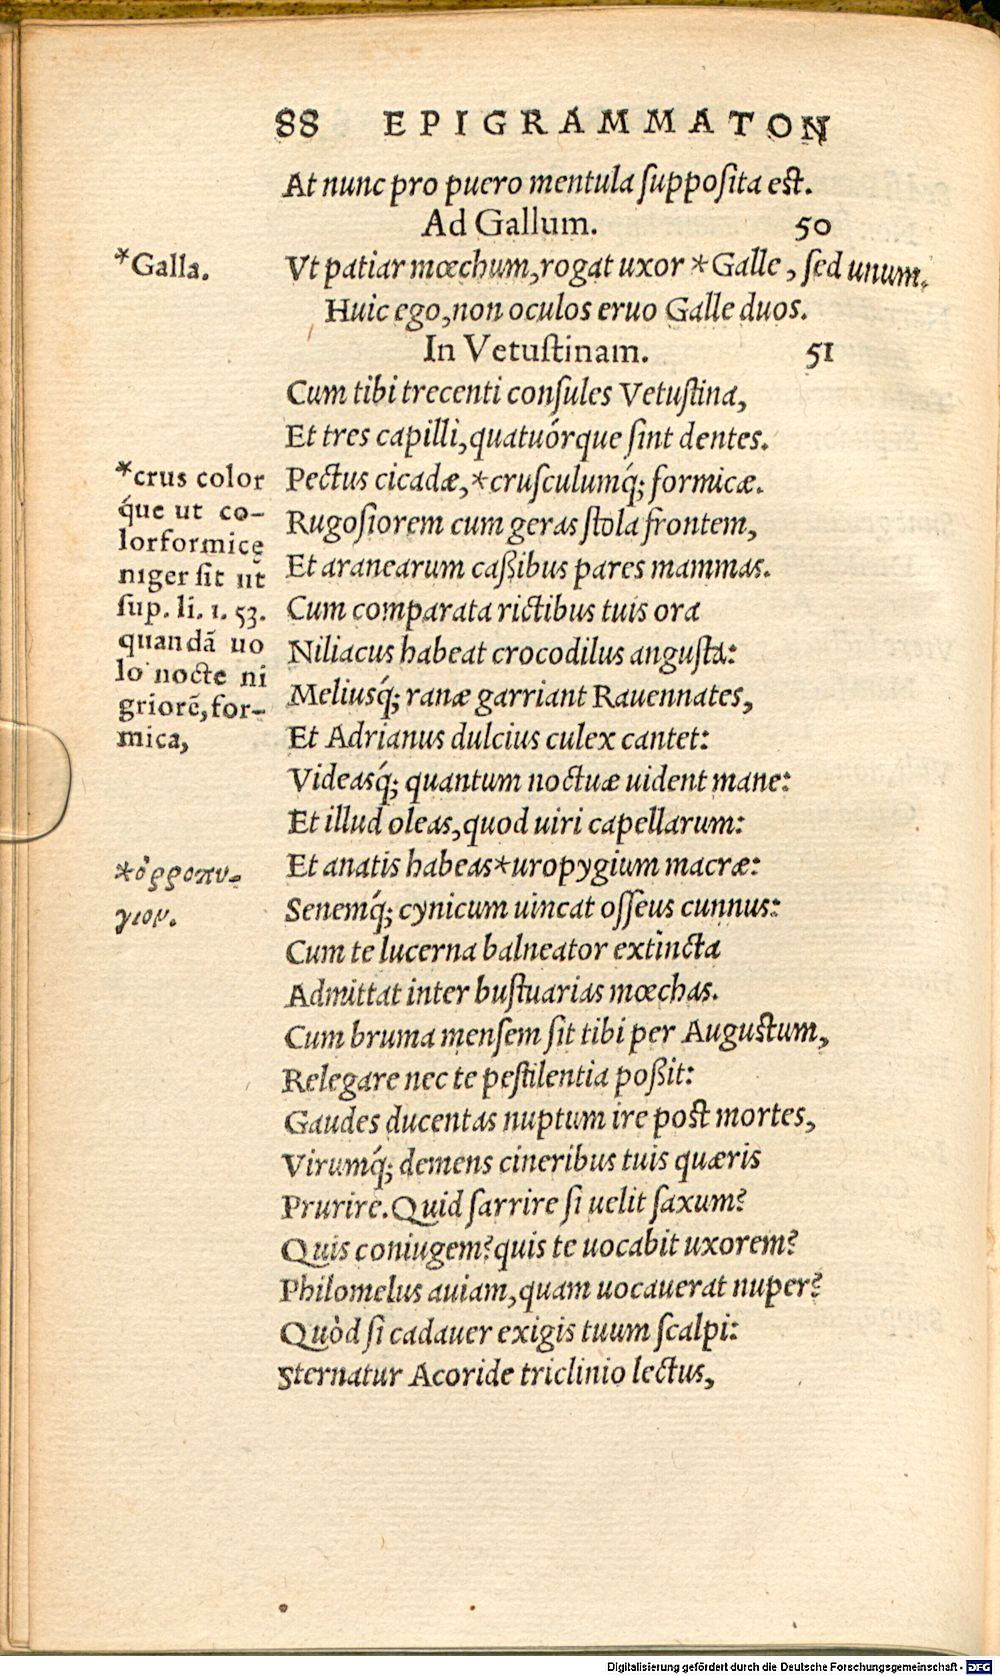 88 EPIGRAMMATON
At nunc pro puero mentula ſuppoſita eſt.
Ad Gallum. 50
*Galla.
Vt patiar mœchum, rogat uxor *Galle, ſed unum.
Huic ego, non oculos eruo Galle duos.
In Vetuſtinam. 51
Cum tibi trecenti conſules Vetuſtina,
Et tres capilli, quatuórque ſint dentes.
*crus color
q́ue ut co-
lorformicę
niger ſit ut
ſup. li. 1. 53.
quandã uo
lo nocte ni
griorẽ, for-
mica,
Pectus cicadæ, *cruſculumq́; formicæ.
Rugoſiorem cum geras ſtola frontem,
Et aranearum caßibus pares mammas.
Cum comparata rictibus tuis ora
Niliacus habeat crocodilus anguſta:
Meliusq́; ranæ garriant Rauennates,
Et Adrianus dulcius culex cantet:
Videasq́; quantum noctuæ uident mane:
Et illud oleas, quod uiri capellarum:
*ὀρροπυ-
γιον.
Et anatis habeas *uropygium macræ:
Senemq́; cynicum uincat oſſeus cunnus:
Cum te lucerna balneator extincta
Admittat inter buſtuarias mœchas.
Cum bruma menſem ſit tibi per Auguſtum,
Relegare nec te peſtilentia poßit:
Gaudes ducentas nuptum ire poſt mortes,
Virumq́; demens cineribus tuis quæris
Prurire. Quid ſarrire ſi uelit ſaxum?
Quis coniugem? quis te uocabit uxorem?
Philomelus auiam, quam uocauerat nuper?
Quòd ſi cadauer exigis tuum ſcalpi:
Sternatur Acoride triclinio lectus,
Digitalisierung gefördert durch die Deutsche Forschungsgemeinschaft - DFG